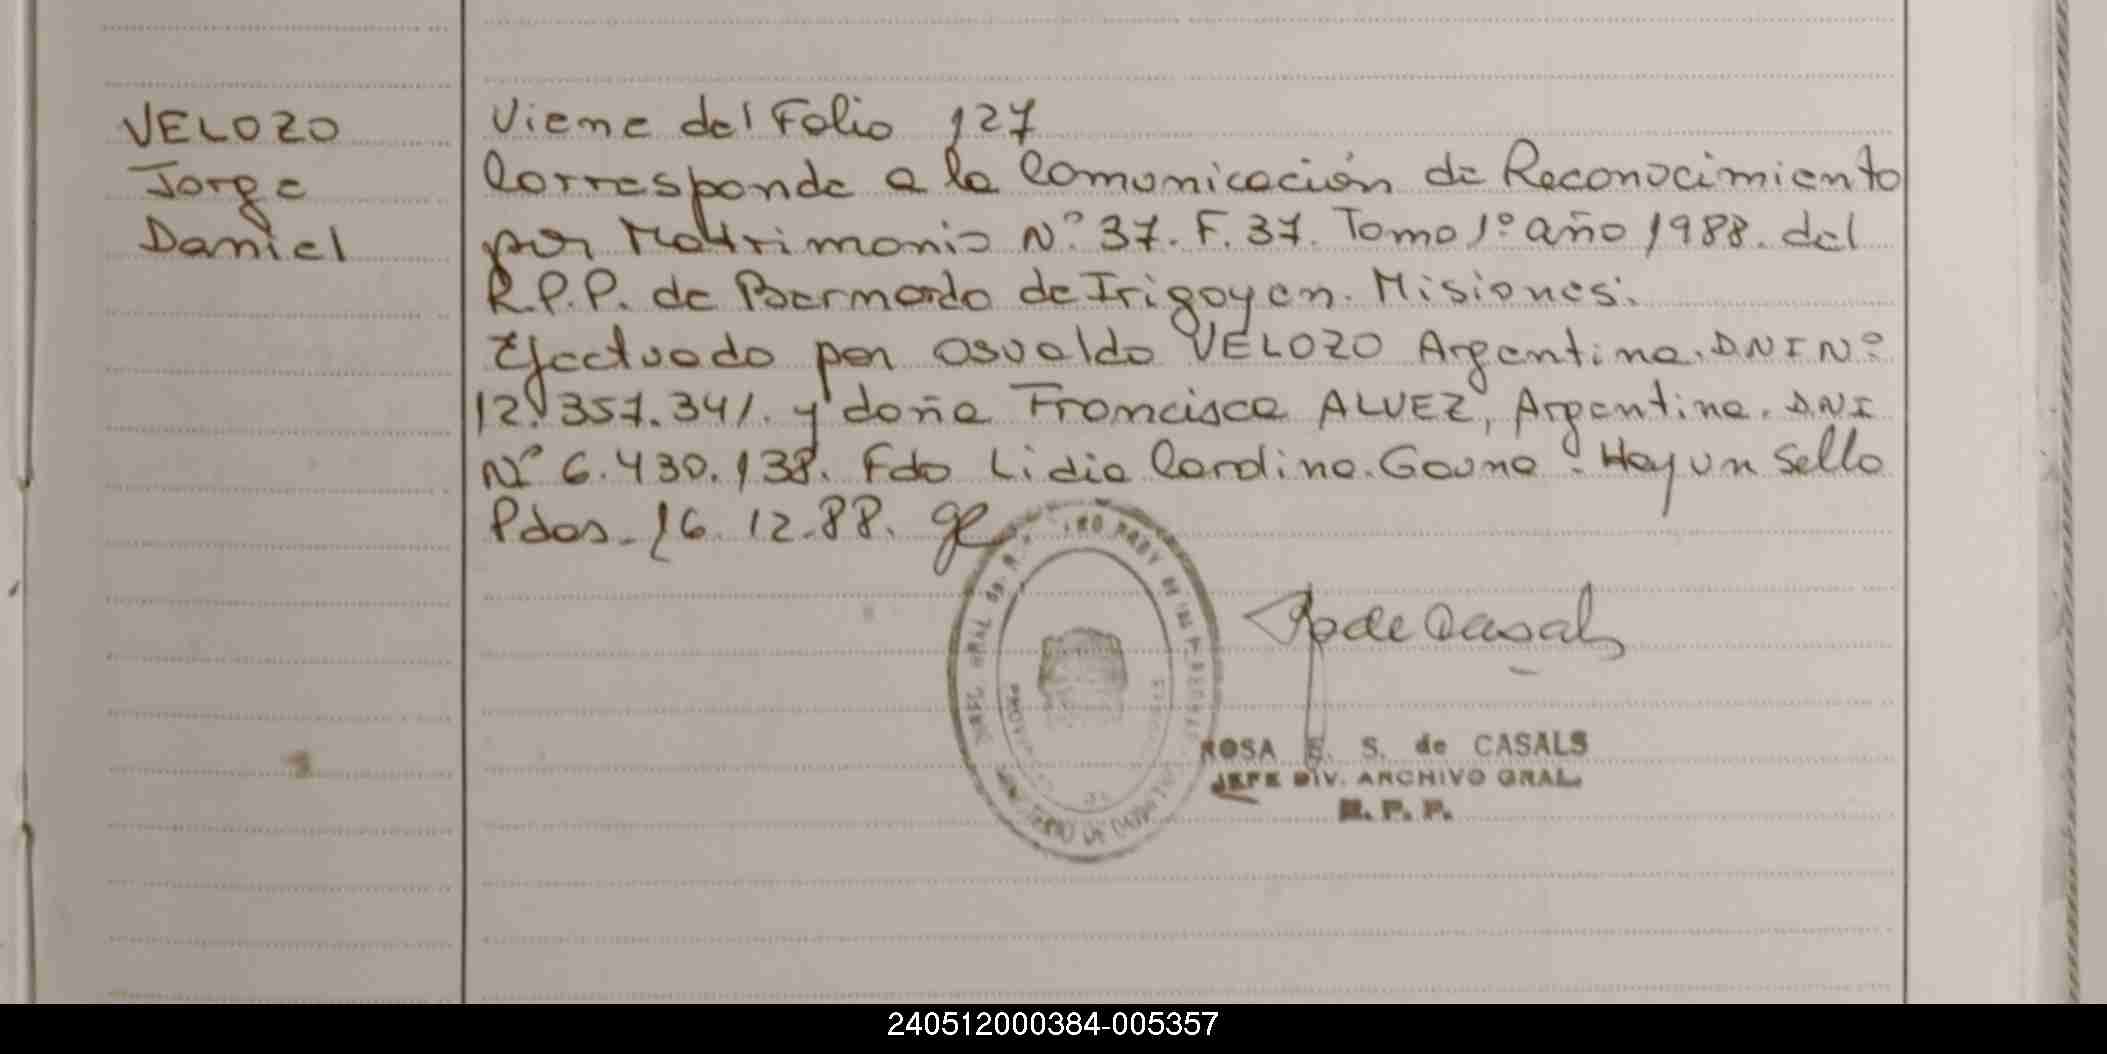 VELOZO
Jorge
Daniel
Viene del Folio 127
Corresponde a la Comunicación de Reconocimiento
por Matrimonio N° 37. F. 37. Tomo 1° año 1988. del
R.P.P. de Bernardo de Irigoyen. Misiones.
Efectuado por Osvaldo VELOZO Argentino. DNI N°
12.357.341. y doña Francisca ALVEZ, Argentina. DNI
N° 6.430.138. Fdo Lidia Gauna. Hay un Sello
Pdas. 16.12.88.
de Casals
ROSA E. S. de CASALS
JEFE DIV. ARCHIVO GRAL.
R. P. P.
240512000384-005357